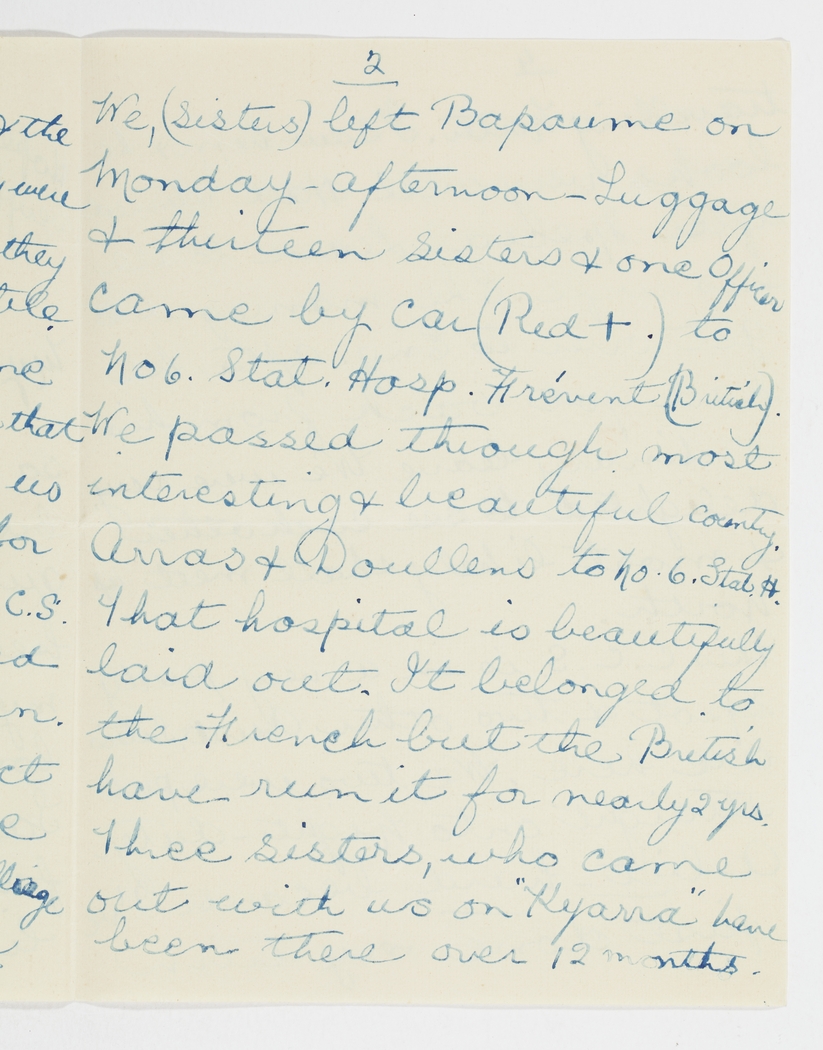 2
We, (sisters) left Bapaume on
Monday - afternoon - Luggage
& thirteen sisters & one Officer
came by car (Red + .) to
No 6. Stat. Hosp. Frévent (British).
We passed through most
interesting & beautiful county.
Arras & Doullens to No. 6. Stat. H.
That hospital is beautifully
laid out. It belonged to
the French but the British
have run it for nearly 2 yrs.
Three sisters, who came
out with us on "Kyarra" have
been there over 12 months.
& the
were
they
me
that
us
for
C.S.
n.
ct
e